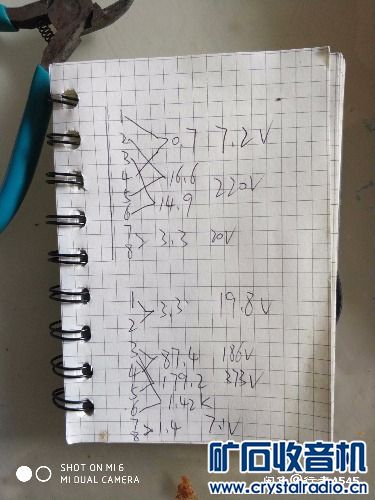 1
2 0.7 7.2V
3
4 16.6 220V
5
6 14.9
7
8 3.3 20V
1
2 3.3 19.8V
3 87.4 186V
4
5 179.2 373V
6 1.42K
7
8 1.4 7.1V
SHOT ON MI 6
MI DUAL CAMERA
矿石收音机
www.crystalradio.cn